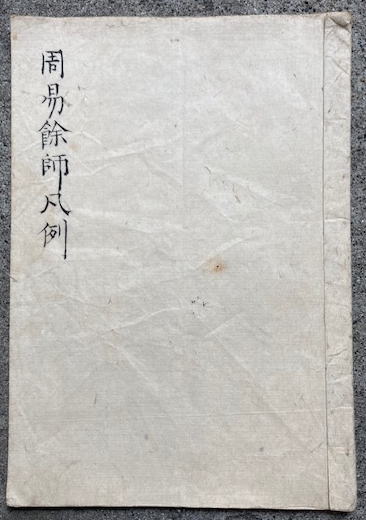 周易餘師凡例